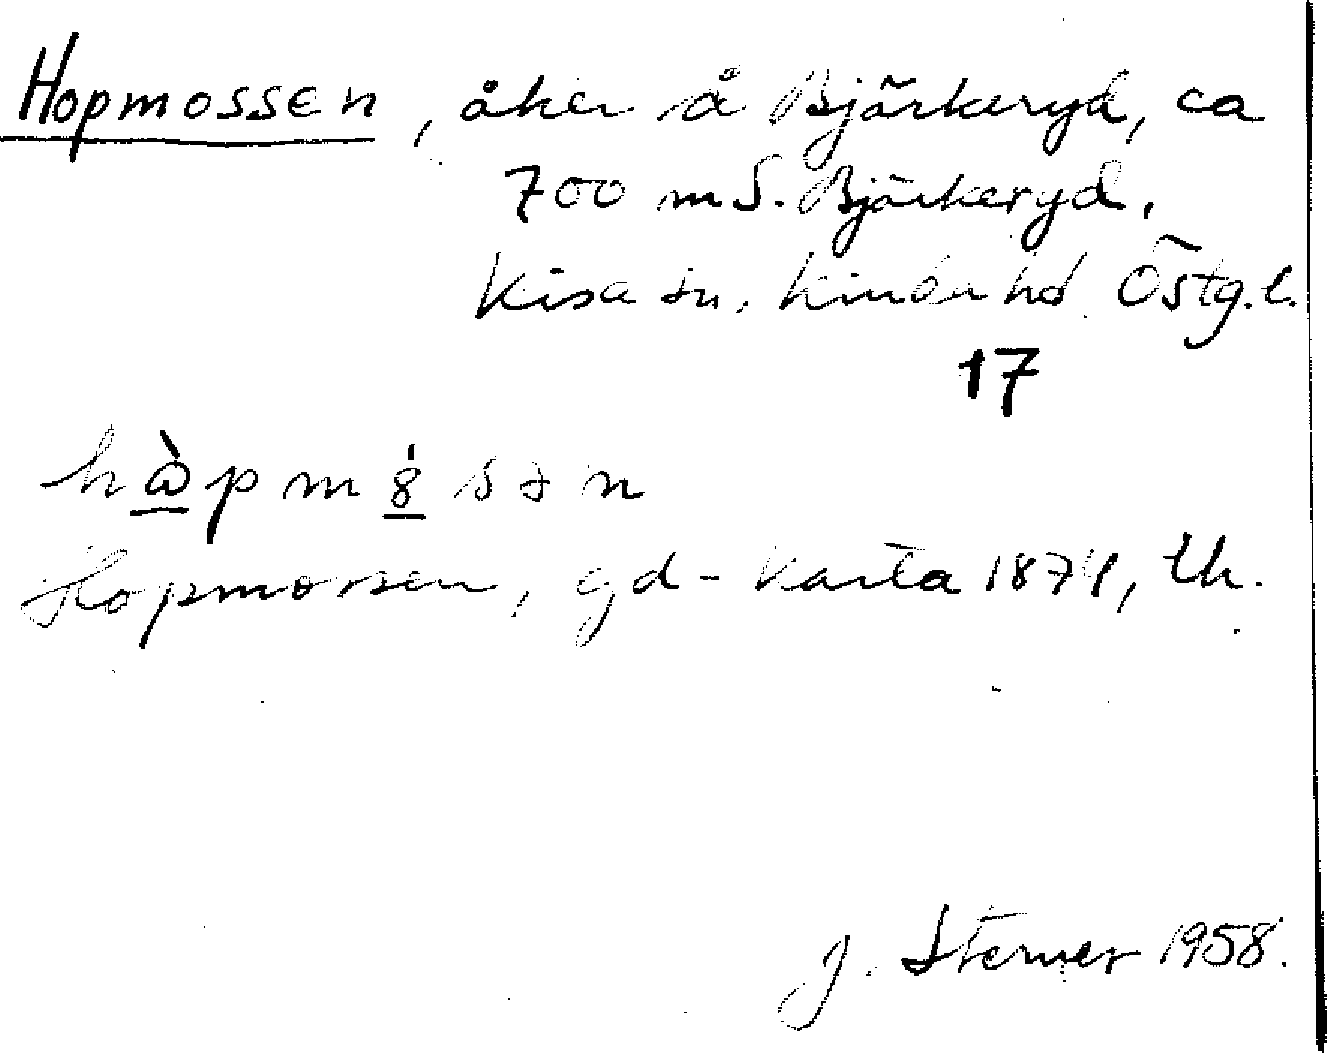 Hopmossen, åker å Björkeryd, ca
700 m S. Björkeryd,
Kisa sn, Kinda hd Östg.l.
17
Hopmossen, gd-karta 1874, th.
J. Sterner 1958.